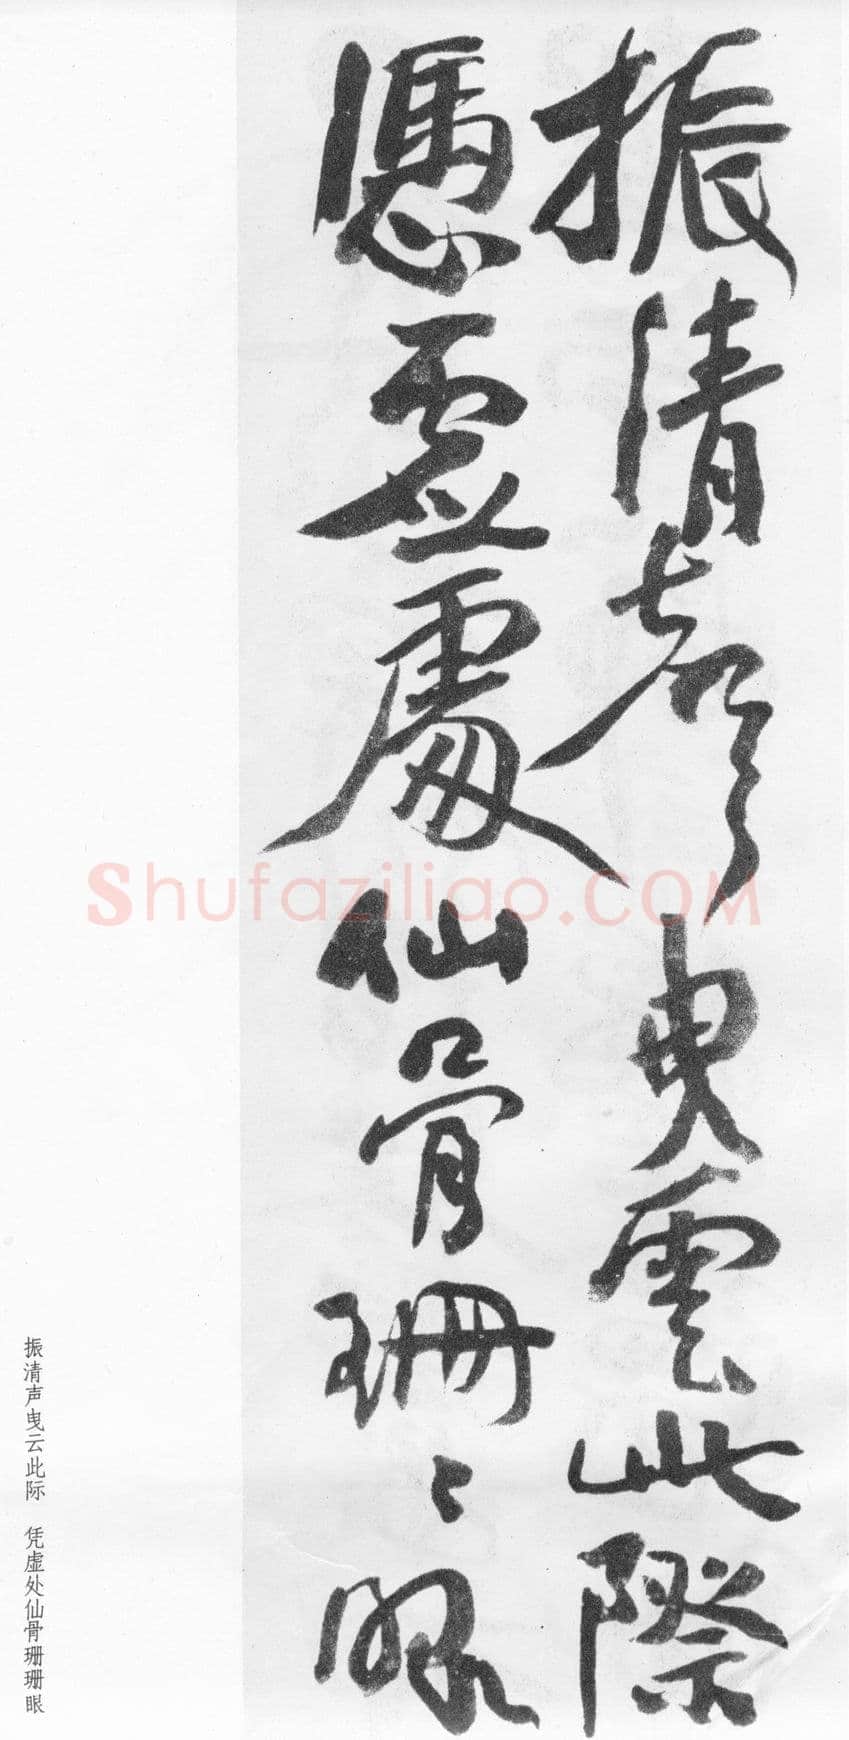 振清聲曳雲此際
憑虛處仙骨珊〻眼
振清声曳云此际 凭虚处仙骨珊珊眼
Shufaziliao.COM